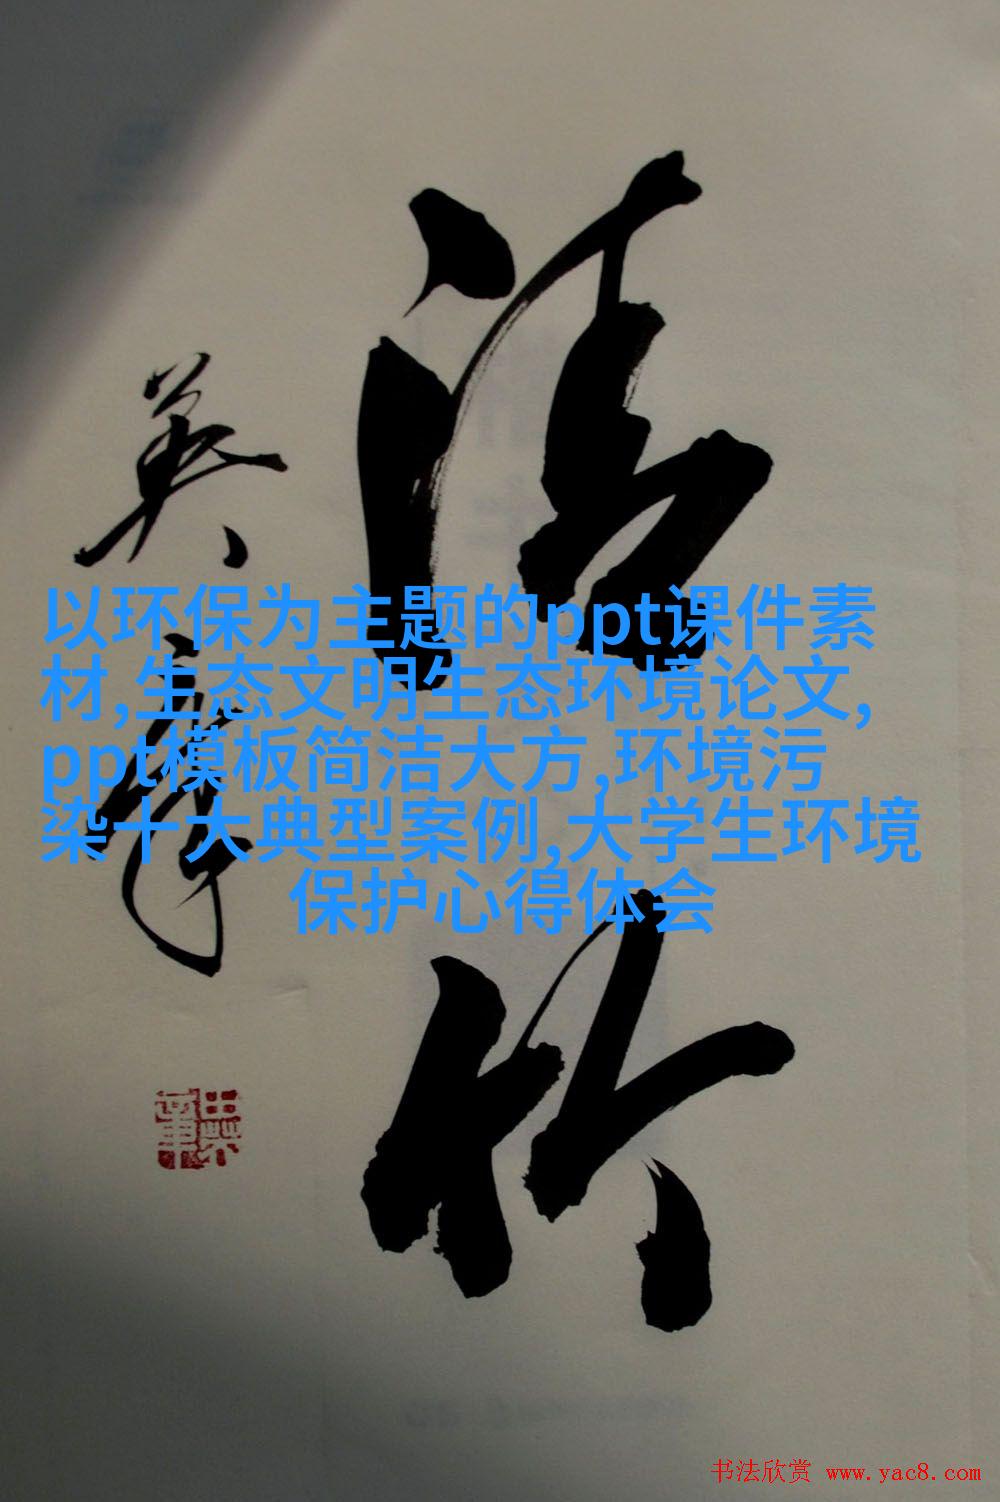 竹
英章
以环保为主题的ppt课件素
材,生态文明生态环境论文,
ppt模板简洁大方,环境污
染十大典型案例,大学生环境
保护心得体会
田英章
书法欣赏 www.yac8.com